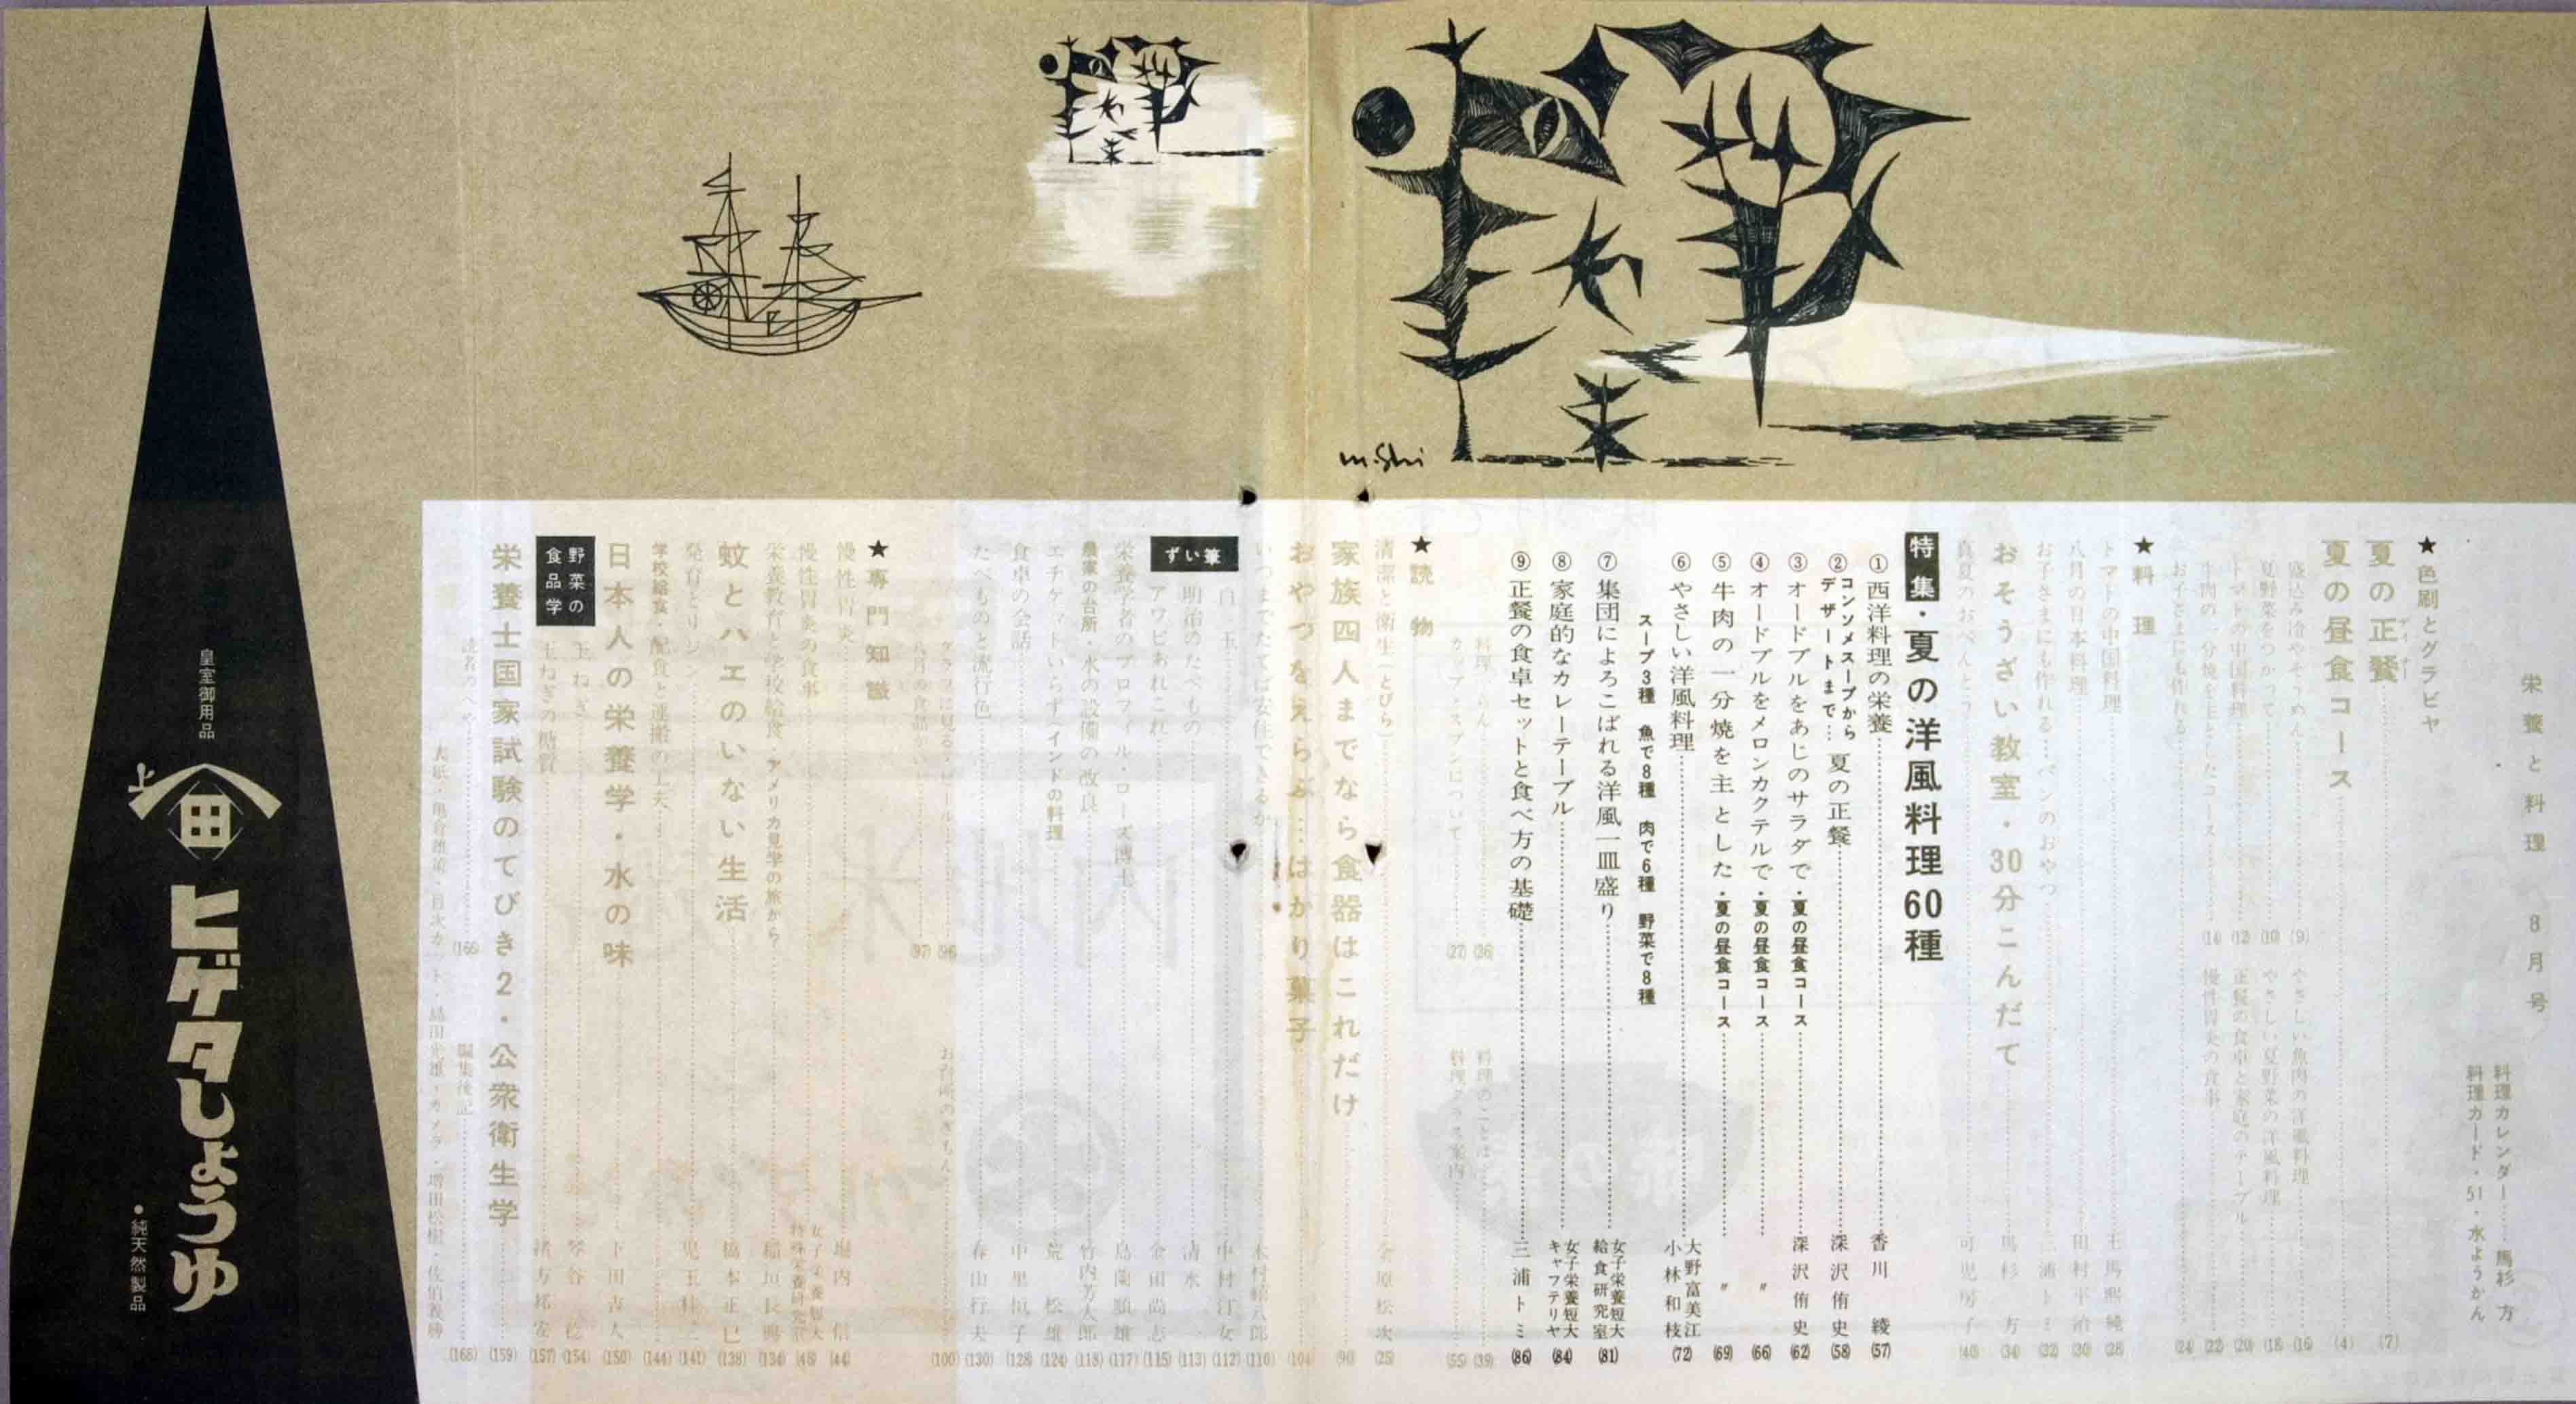 栄養と料理 8月号
料理カレンダー……馬杉 方
料理カード・51・水ようかん
★色刷とグラビヤ
夏の正餐 (7)
ディナー
夏の昼食コース (4)
盛込み冷やそうめん (9)
やさしい魚肉の洋風料理 (16)
夏野菜をつかって (10)
やさしい夏野菜の洋風料理 (18)
トマトの中国料理 (12)
正餐の食卓と家庭のテーブル (20)
牛肉の一分焼を主としたコース (14)
慢性胃炎の食事 (22)
お子さまにも作れる (24)
★料理
トマトの中国料理 王馬熙純 (28)
八月の日本料理 田村平治 (30)
お子さまにも作れる…パンのおやつ 三浦トミ (32)
おそうざい教室・30分こんだて 馬杉 方 (34)
真夏のおべんとう 可児房子 (40)
特集・夏の洋風料理60種
①西洋料理の栄養 香川 綾 (57)
②コンソメスープからデザートまで…夏の正餐 深沢侑史 (58)
③オードブルをあじのサラダで・夏の昼食コース 深沢侑史 (62)
④オードブルをメロンカクテルで・夏の昼食コース 〃 (66)
⑤牛肉の一分焼を主とした・夏の昼食コース 〃 (69)
⑥やさしい洋風料理 大野富美江 小林和枝 (72)
スープ3種 魚で8種 肉で6種 野菜で8種
⑦集団によろこばれる洋風一皿盛り 女子栄養短大給食研究室 (81)
⑧家庭的なカレーテーブル 女子栄養短大キャフテリヤ (84)
⑨正餐の食卓セットと食べ方の基礎 三浦トミ (86)
料理 (36)
料理のことば (39)
カップ・スプンについて (27)
料理クラス案内 (55)
★読物
清潔と衛生(とびら) 金原松次 (25)
家族四人までなら食器はこれだけ (90)
おやつをえらぶ…はかり菓子 (104)
いつまでたてば安住できるか 木村禧八郎 (110)
ずい筆
白玉 中村汀女 (112)
明治のたべもの 清水 一 (113)
アワビあれこれ 金田尚志 (115)
栄養学者のプロフィル・ローズ博士 島薗順雄 (117)
農家の台所・水の設備の改良 竹内芳太郎 (118)
エチケットいらず…インドの料理 荒 松雄 (124)
食卓の会話 中里恒子 (128)
たべものと流行色 春山行夫 (130)
グラフに見る・ビール (96)
お台所のぎもん (100)
八月の食品 (97)
★専門知識
慢性胃炎 堀内 信 (44)
慢性胃炎の食事 女子栄養短大特殊栄養研究室 (48)
栄養教育と学校給食・アメリカ見学の旅から? 稲垣長典 (134)
蚊とハエのいない生活 橋本正巳 (138)
発育とリジン 児玉桂三 (141)
学校給食・配食と運搬の工夫 (144)
日本人の栄養学・水の味 下田吉人 (150)
野菜の食品学
玉ねぎ (154)
玉ねぎの糖質 緒方邦安 (157)
栄養士国家試験のてびき2・公衆衛生学 (159)
読者のへや (166)
編集後記 (168)
表紙・亀倉雄策・目次カット・島田光雄・カメラ・増田松樹・佐伯義勝
m.Shi
皇室御用品
上
田
ヒゲタしょうゆ
・純天然製品